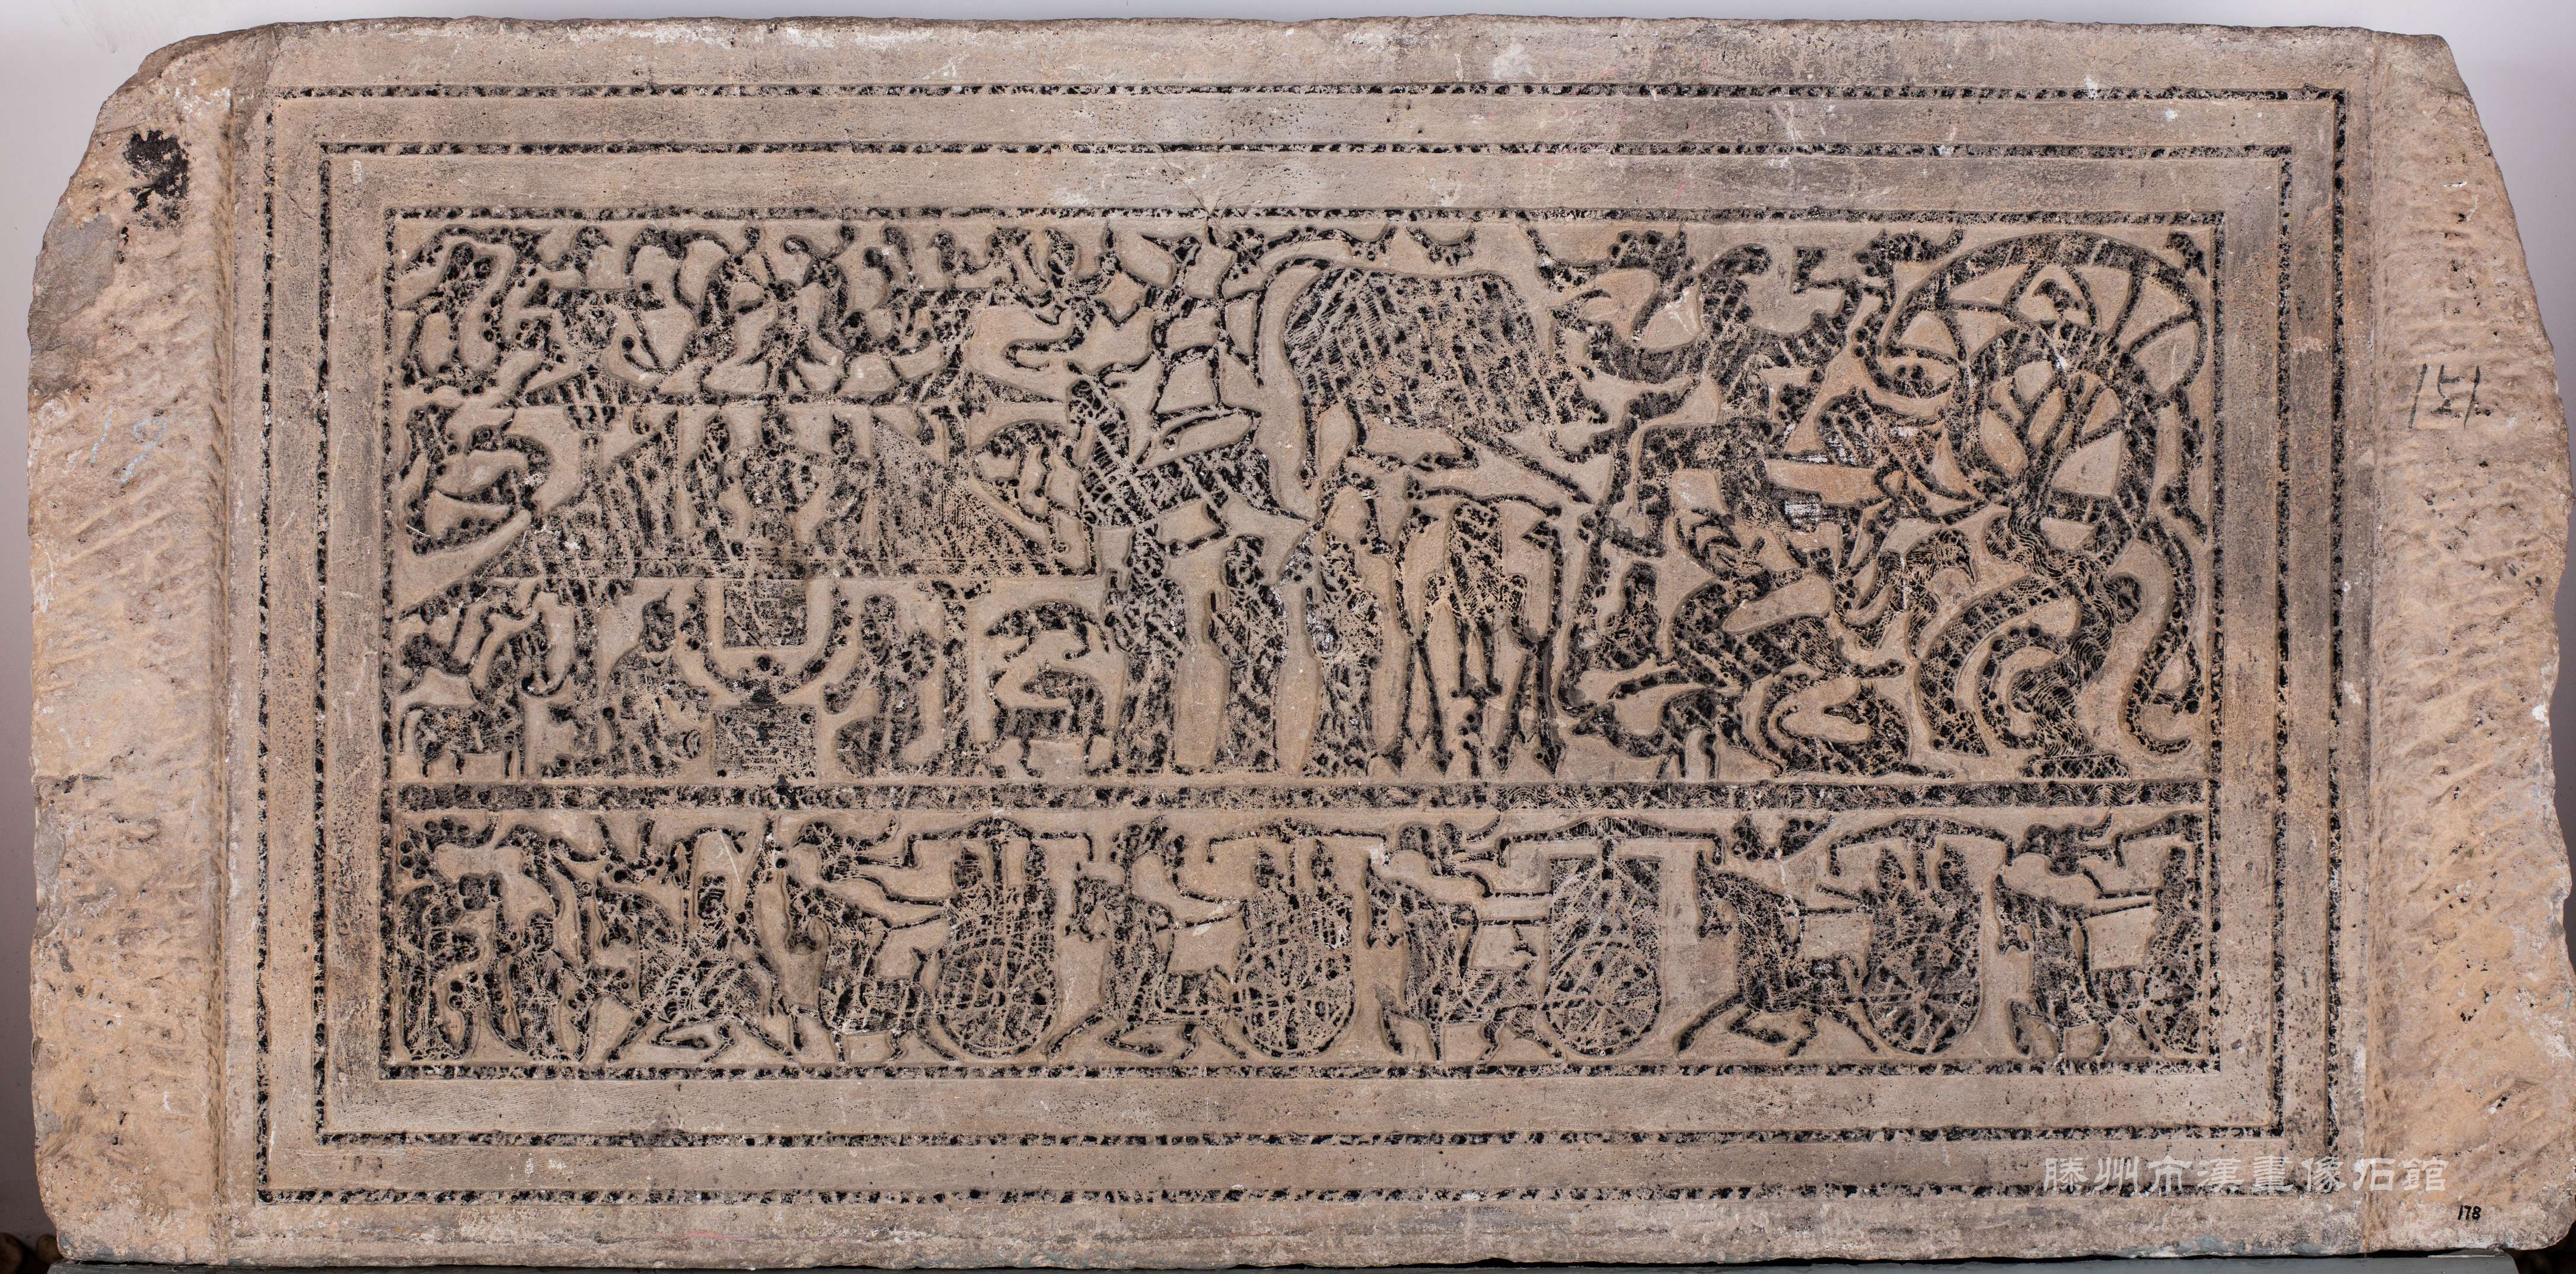 151
滕州市漢畫像石館
178